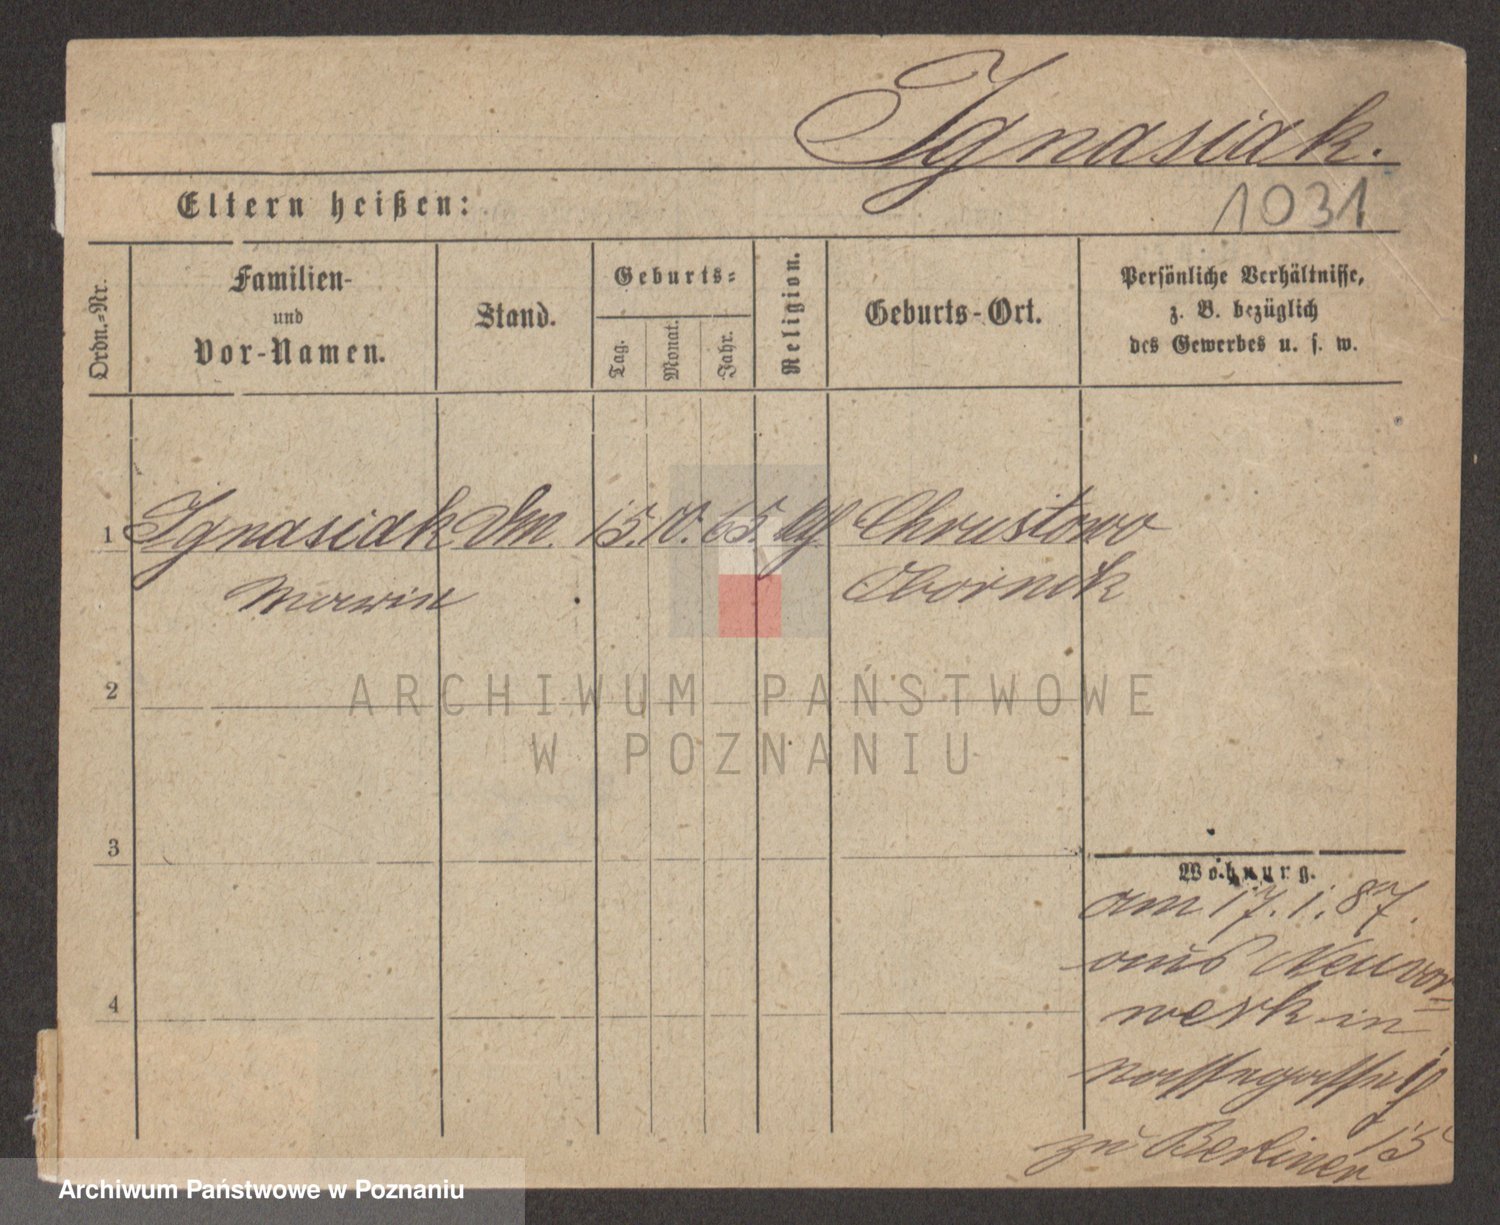 Ignasiak.
1031
Eltern heißen:
Ordn.=Nr.
Familien-
und
Vor-Namen.
Stand.
Geburts=
Tag.
Monat.
Jahr.
Religion.
Geburts-Ort.
Persönliche Verhältnisse,
z. B. bezüglich
des Gewerbes u. s. w.
1 Ignasiak 15. 65. Chrustowo
Obornik
2
ARCHIWUM PAŃSTWOWE
W POZNANIU
3
Wohnung.
am 17. 1. 87.
aus Neuvor=
4
werk in
zu Berliner 15
Archiwum Państwowe w Poznaniu